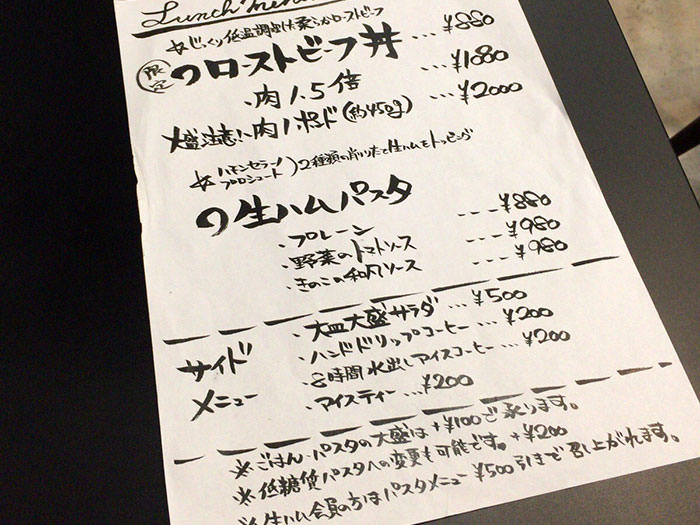 Lunch menu
☆じっくり低温調理した柔らかローストビーフ
限定 ワローストビーフ丼 ...¥880
・肉1.5倍 ...¥1080
大盛注意!!肉1ポンド(約450g) ...¥2000
☆ハモンセラーノ プロシュート 2種類の削りたて生ハムをトッピング
ワ生ハムパスタ
・プレーン ---¥880
・野菜のトマトソース ---¥980
・きのこの和風ソース ---¥980
サイドメニュー
・大皿大盛サラダ ...¥500
・ハンドドリップコーヒー ...¥200
・8時間水出しアイスコーヒー ...¥200
・アイスティー ...¥200
※ごはん・パスタの大盛は+¥100で承ります。
※低糖質パスタへの変更も可能です。+¥200
※生ハム会員の方はパスタメニュー¥500引きで召し上がれます。